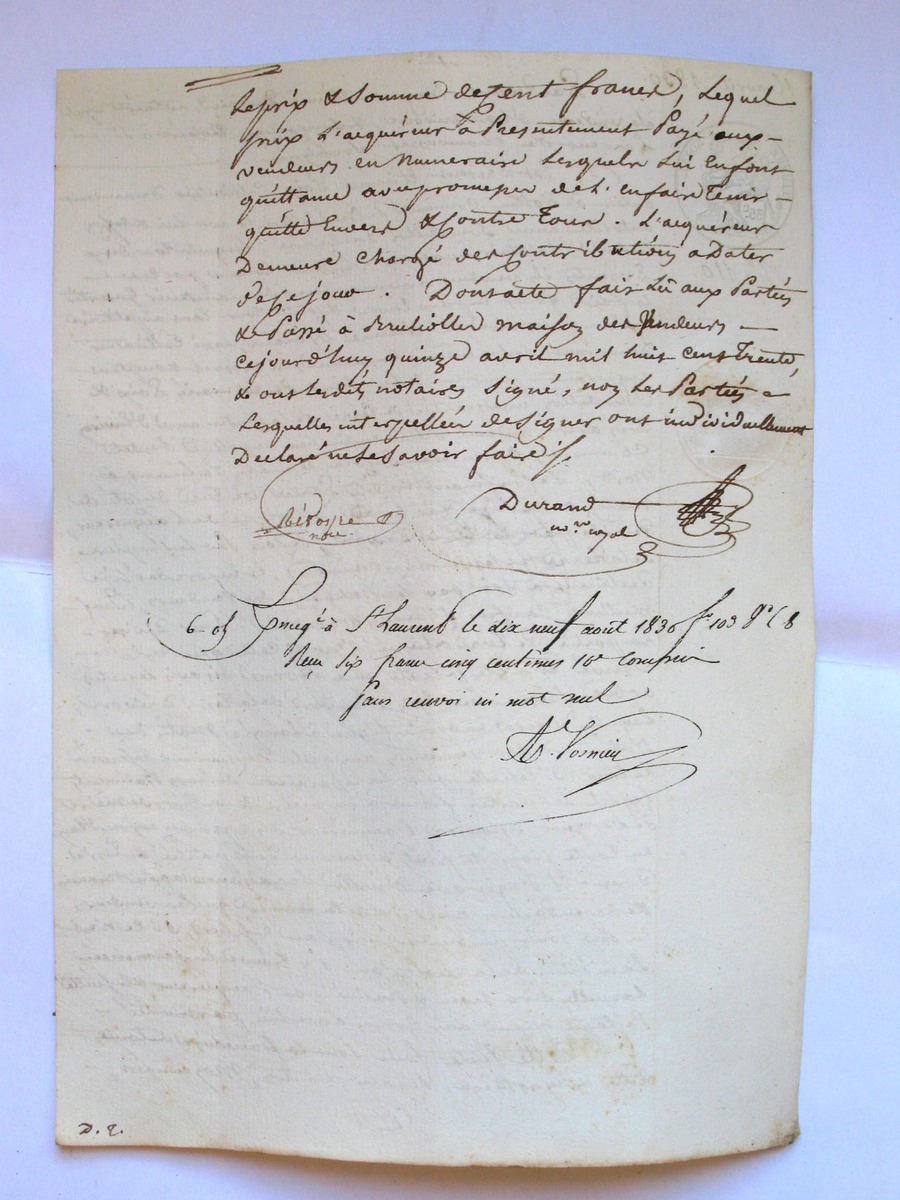 le prix & Somme de Cent francs, Lequel
prix L'acquéreur à Présentement Payé aux
vendeurs en Numeraire Lesquels Lui En font
quittance avec promesse de L'en faire Tenir
quitte Envers & Contre Tous. L'acquéreur
Demeure Chargé des Contributions a Dater
de ce jour. Dont acte fait Lû aux Partiés
& Passé à maison des Vendeurs
cejourd'huy quinze avril mil huit cent Trente,
& ont lesdits notaires Signé, non Les Partiés
Lesquelles interpellées de Signer ont individuellement
Declaré ne Le Savoir faire /.
nore.
Durand
nore royal
6-05 Enregé à St Laurent le dix neuf août 1830 fo 103 Vo C 8
Reçu six francs cinq centimes 10e compris
Sans renvoi ni mot nul
D. 2.